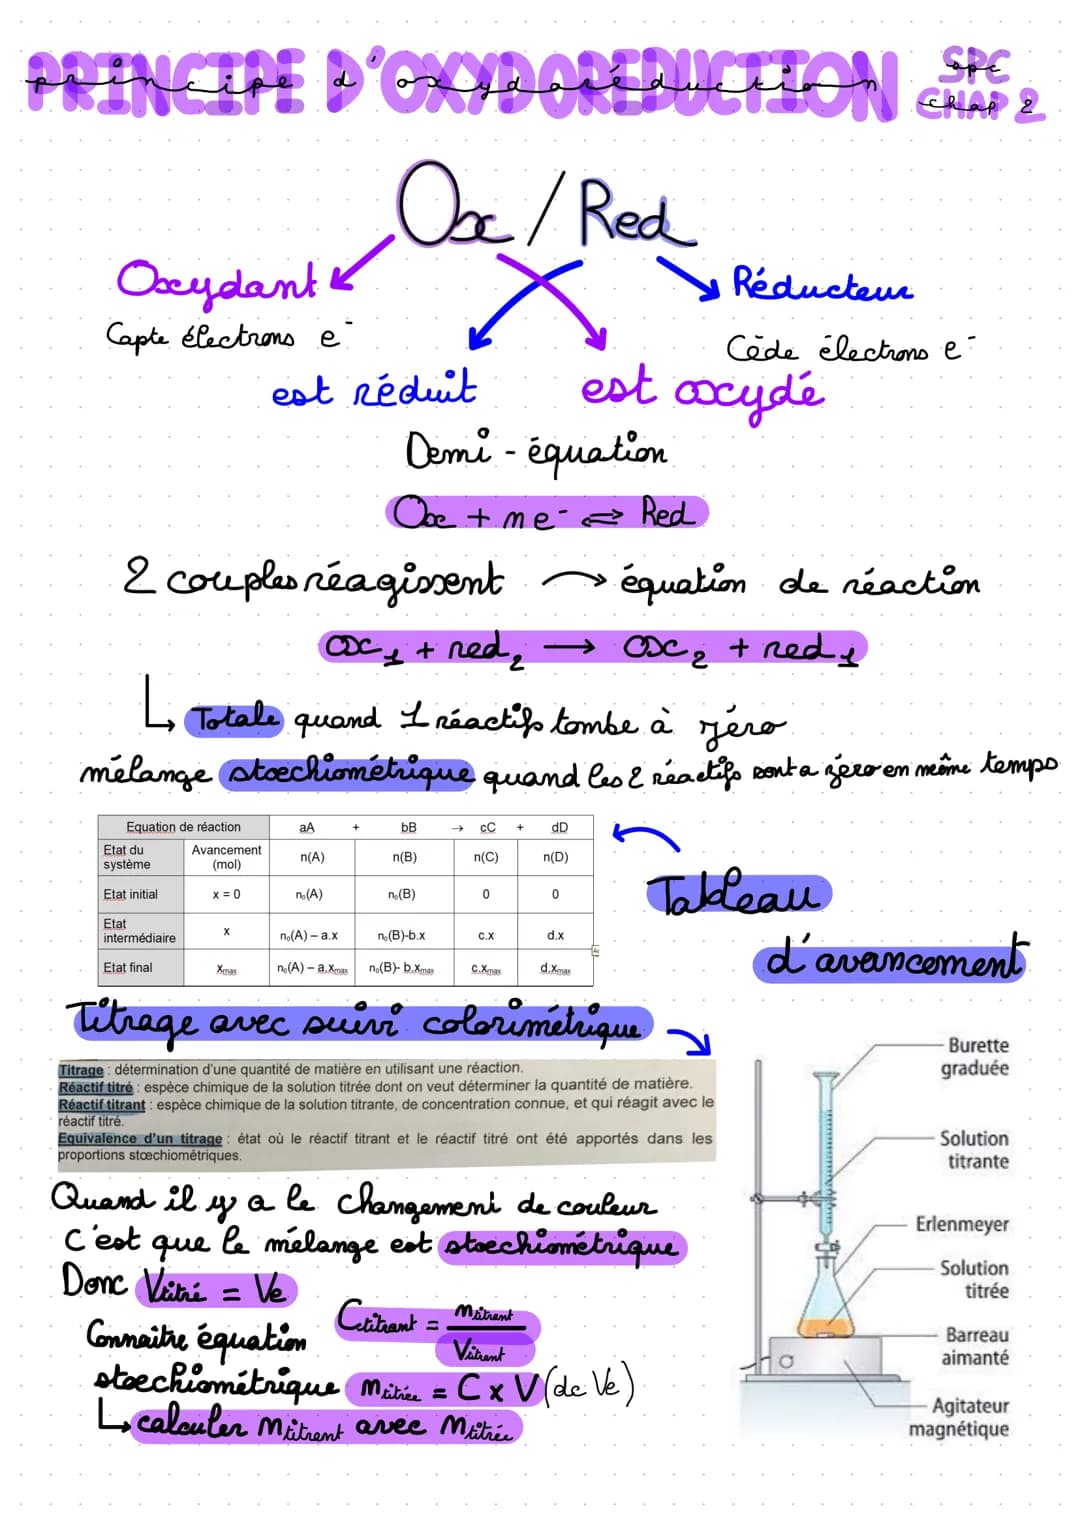 PRINCIPE D'OXYDOREDUCTION
principe d'oxydoréduction
SPC
spc
CHAP 2
chap 2
Ox / Red
Oxydant
Réducteur
Capte électrons e⁻
Cède électrons e⁻
est réduit
est oxydé
Demi - équation
Ox + ne⁻ ⇌ Red
2 couples réagissent → équation de réaction
ox₁ + red₂ → ox₂ + red₁
Totale quand 1 réactifs tombe à zéro
mélange stoechiométrique quand les 2 réactifs sont a zero en même temps
Equation de réaction aA + bB → cC + dD
Etat du système Avancement (mol) n(A) n(B) n(C) n(D)
Etat initial x = 0 n₀(A) n₀(B) 0 0
Etat intermédiaire x n₀(A) – a.x n₀(B)-b.x c.x d.x
Etat final xmax n₀(A) – a.xmax n₀(B)- b.xmax c.xmax d.xmax
Tableau
d'avancement
Titrage avec suivi colorimétrique
Titrage : détermination d'une quantité de matière en utilisant une réaction.
Réactif titré : espèce chimique de la solution titrée dont on veut déterminer la quantité de matière.
Réactif titrant : espèce chimique de la solution titrante, de concentration connue, et qui réagit avec le
réactif titré.
Equivalence d'un titrage : état où le réactif titrant et le réactif titré ont été apportés dans les
proportions stœchiométriques.
Burette
graduée
Solution
titrante
Erlenmeyer
Solution
titrée
Barreau
aimanté
Agitateur
magnétique
Quand il y a le changement de couleur
c'est que le mélange est stoechiométrique
Donc Vtitré = Ve
Connaitre équation
stoechiométrique
Ctitrant = ntitrant / Vtitrant
ntitrée = C x V (de Ve)
calculer ntitrant avec ntitrée